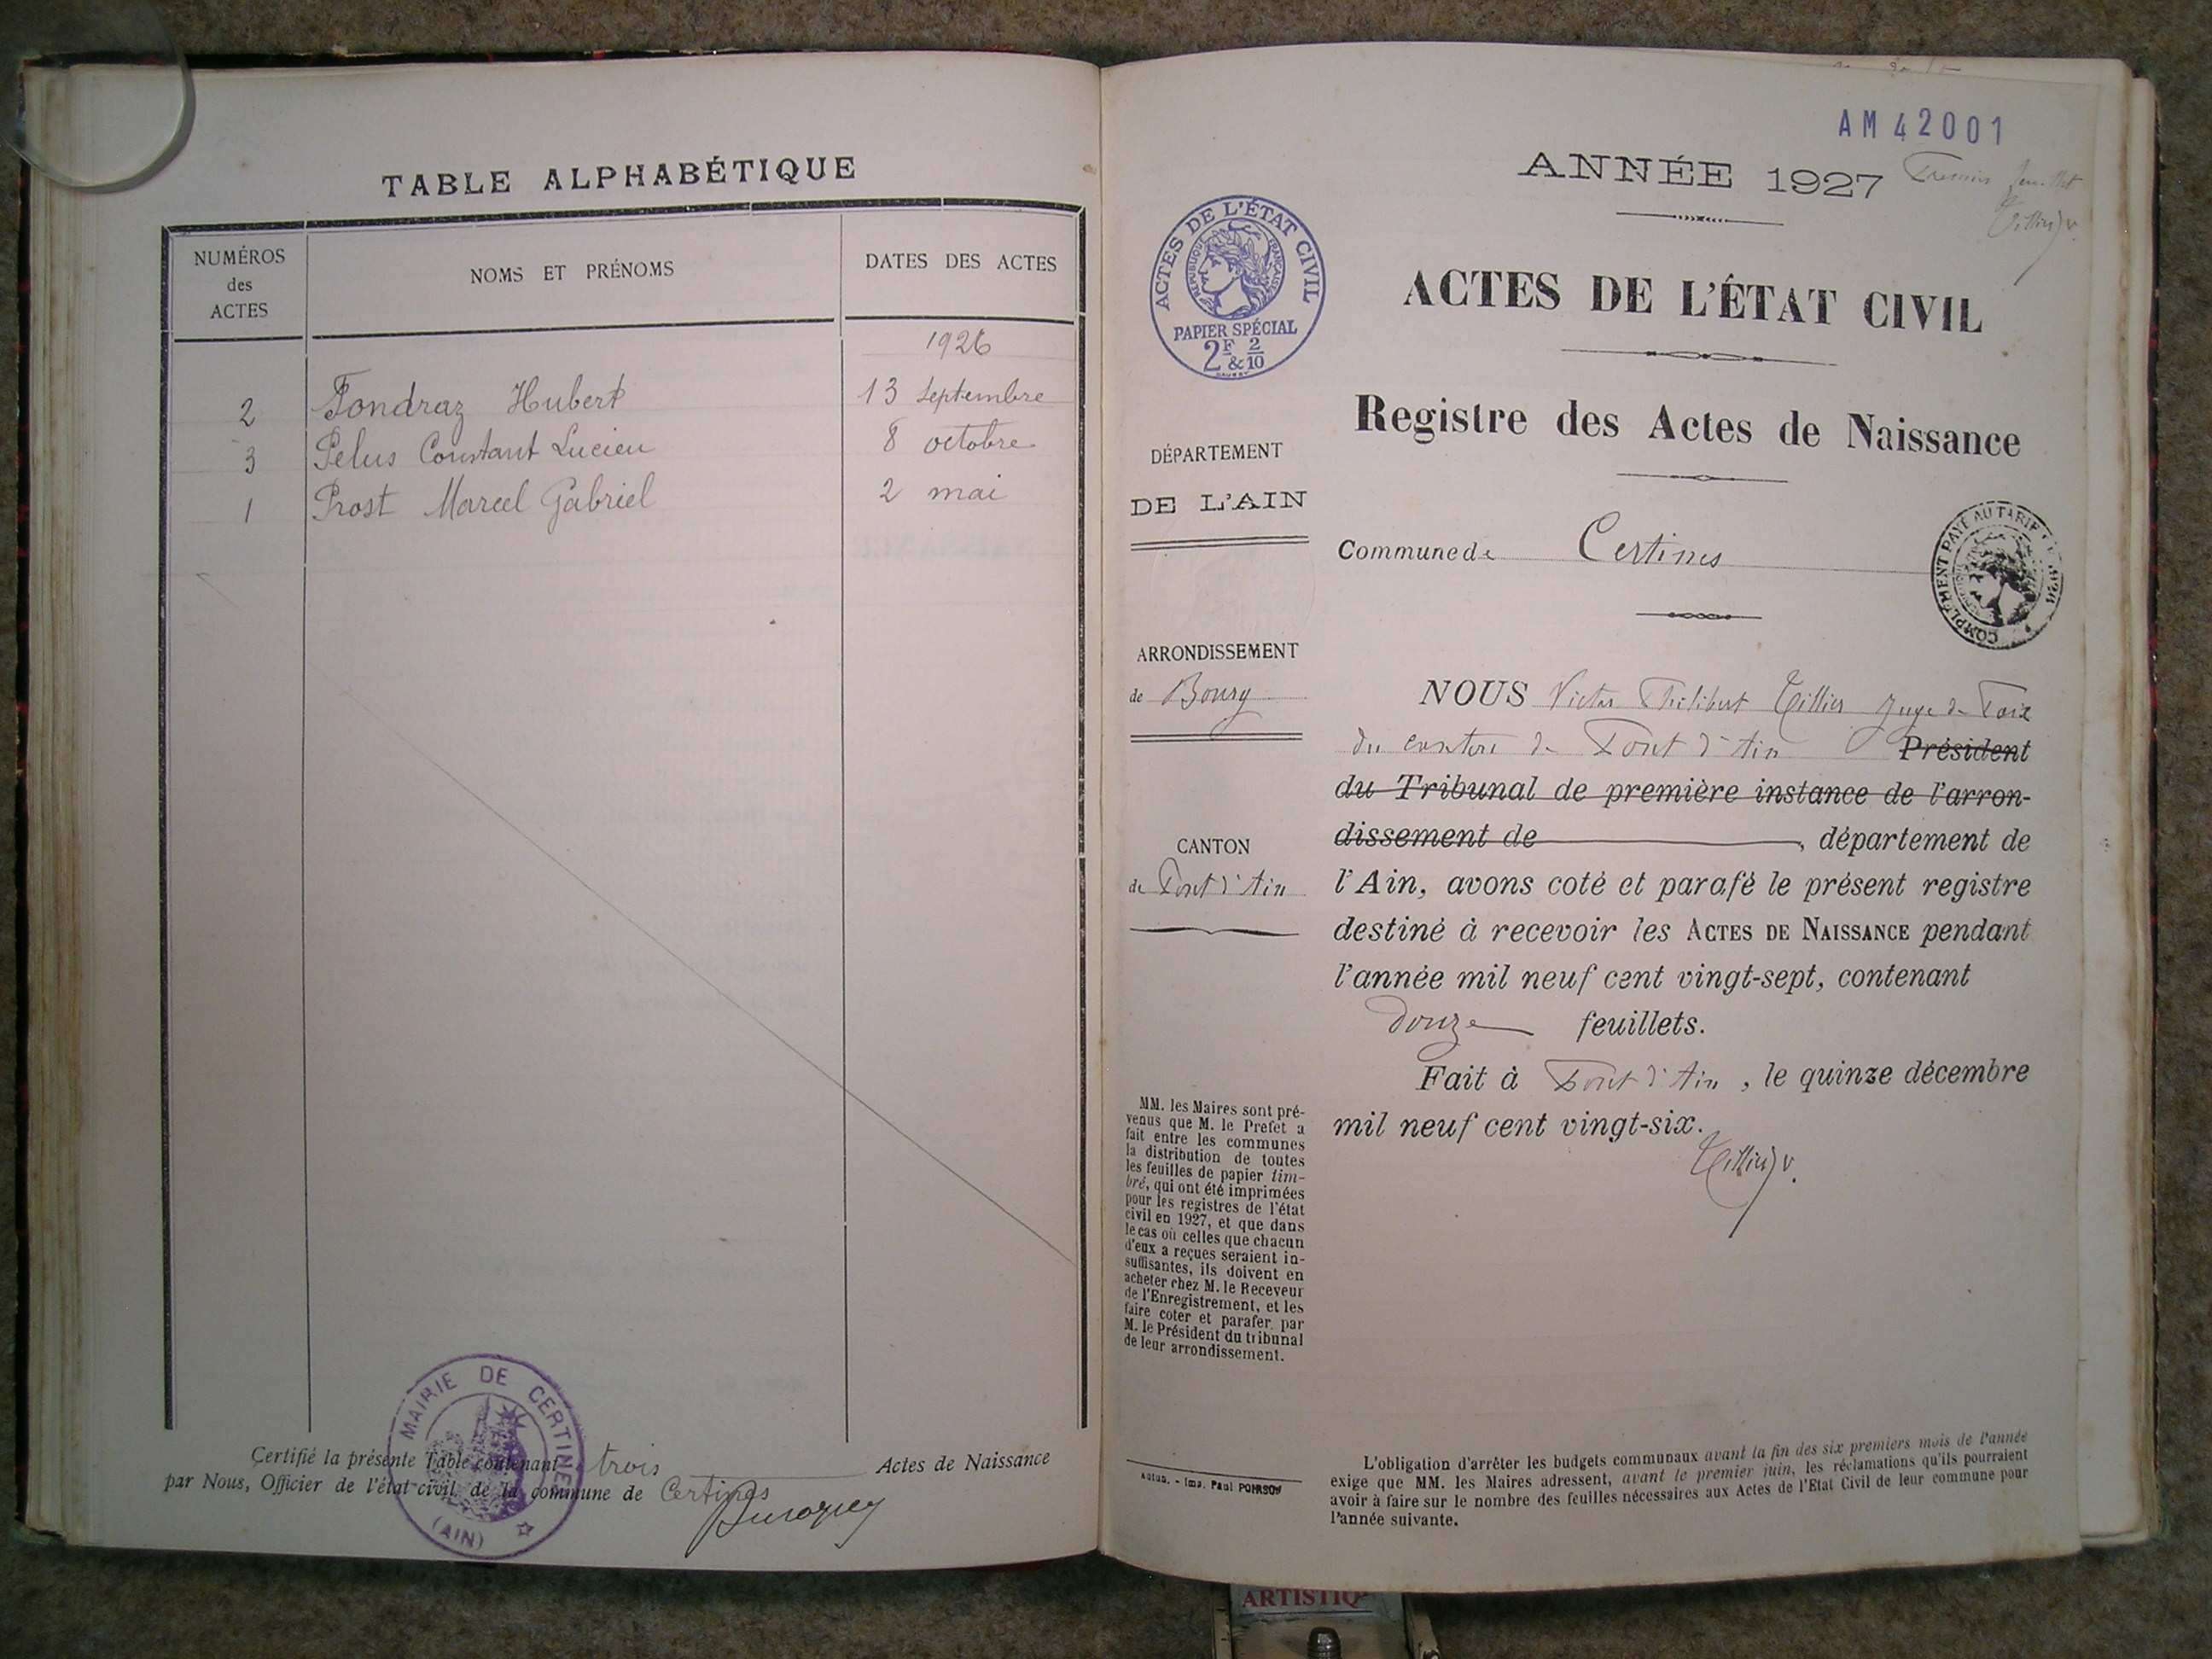 TABLE ALPHABÉTIQUE
NUMÉROS des ACTES
NOMS ET PRÉNOMS
DATES DES ACTES
1926
2 Fondraz Hubert 13 septembre
3 Pelus Constant Lucien 8 octobre
1 Prost Marcel Gabriel 2 mai
MAIRIE DE CERTINES
(AIN)
Certifié la présente Table contenant trois Actes de Naissance
par Nous, Officier de l'état civil de la commune de Certines
AM 42001
ANNÉE 1927
Premier feuillet
Tillier V.
ACTES DE L'ÉTAT CIVIL
RÉPUBLIQUE FRANÇAISE
PAPIER SPÉCIAL
2F & 2/10
ACTES DE L'ÉTAT CIVIL
Registre des Actes de Naissance
DÉPARTEMENT
DE L'AIN
Commune de Certines
COMPLÉMENT PAYÉ AU TARIF
ARRONDISSEMENT
de Bourg
CANTON
de Pont d'Ain
NOUS Victor Philibert Tillier Juge de Paix
du canton de Pont d'Ain Président
du Tribunal de première instance de l'arron-
dissement de , département de
l'Ain, avons coté et parafé le présent registre
destiné à recevoir les ACTES DE NAISSANCE pendant
l'année mil neuf cent vingt-sept, contenant
douze feuillets.
Fait à Pont d'Ain, le quinze décembre
mil neuf cent vingt-six.
Tillier V.
MM. les Maires sont pré-
venus que M. le Prefet a
fait entre les communes
la distribution de toutes
les feuilles de papier tim-
bré, qui ont été imprimées
pour les registres de l'état
civil en 1927, et que dans
le cas où celles que chacun
d'eux a reçues seraient in-
suffisantes, ils doivent en
acheter chez M. le Receveur
de l'Enregistrement, et les
faire coter et parafer par
M. le Président du tribunal
de leur arrondissement.
Autun. - Imp. Paul POIRSON
L'obligation d'arrêter les budgets communaux avant la fin des six premiers mois de l'année
exige que MM. les Maires adressent, avant le premier juin, les réclamations qu'ils pourraient
avoir à faire sur le nombre des feuilles nécessaires aux Actes de l'Etat Civil de leur commune pour
l'année suivante.
ARTISTIQ